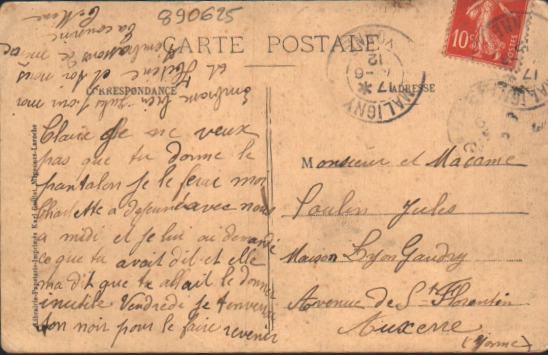 890625
CARTE POSTALE
CORRESPONDANCE
ADRESSE
MALIGNY
YONNE
17
12
10c
Claire je ne veux
pas que tu donne le
pantalon je le ferai moi
Charlotte a dejeuné avec nous
a midi et je lui ai demandé
ce que tu avait dit et elle
ma dit que tu allait le donner
inutile Vendredi je t'enverrai
ton noir pour le faire revenir
Embrasse bien Jules pour moi
et Helene et toi nous
t'embrassons
ta cousine
Monsieur et Madame
Poulin Jules
Maison Lyon Gaudry
Avenue de St Florentin
Auxerre
(Yonne)
Librairie-Papeterie-Imprimerie Karl Guillot, Migennes-Laroche